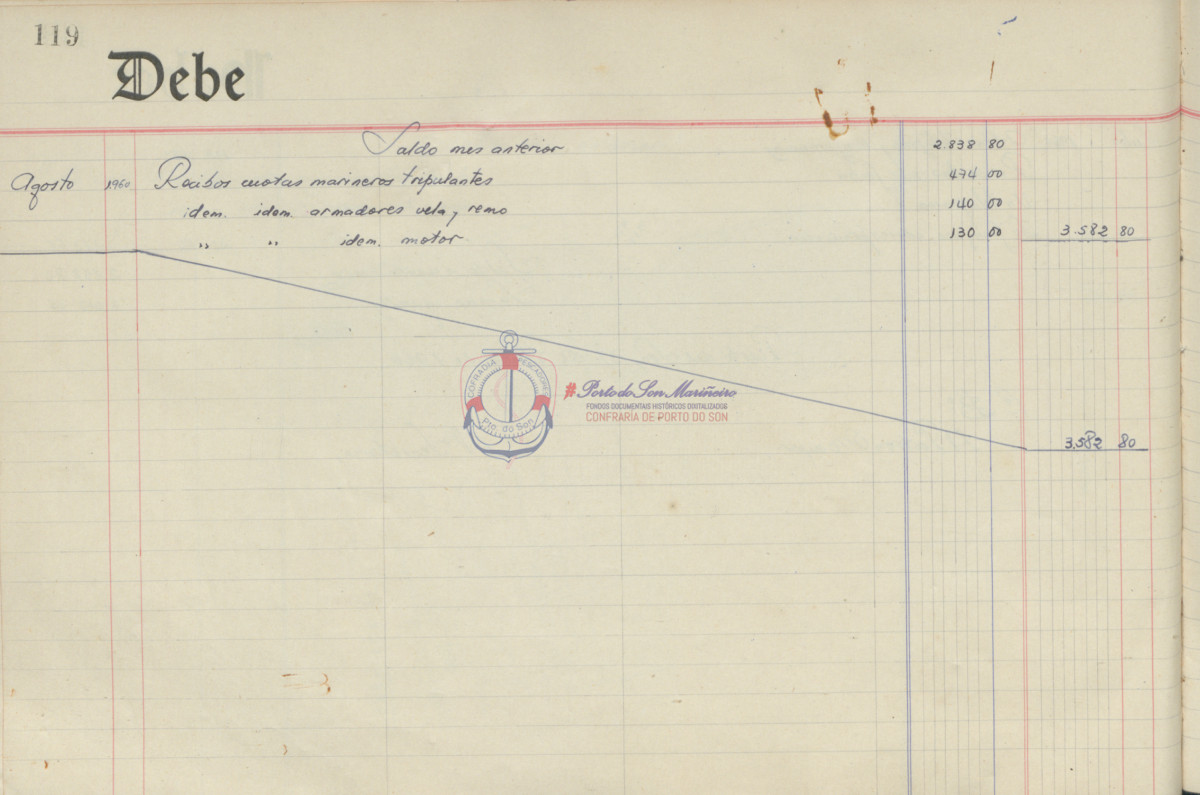 119
Debe
Saldo mes anterior 2.838 80
Agosto 1960 Recibos cuotas marineros tripulantes 474 00
idem. idem. armadores vela y remo 140 00
" " idem. motor 130 00 3.582 80
COFRADIA PESCADORES
Pto. do Son
#Porto do Son Mariñeiro
FONDOS DOCUMENTAIS HISTÓRICOS DIXITALIZADOS
CONFRARÍA DE PORTO DO SON
3.582 80